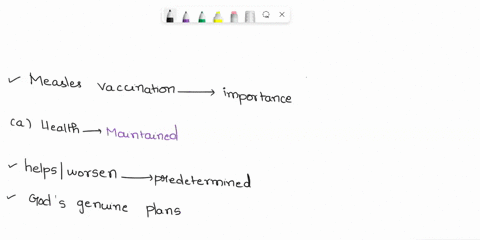 ✓ Measles vaccination → importance
(a) Health → Maintained
✓ helps/worsen → predetermined
✓ God's genuine plans